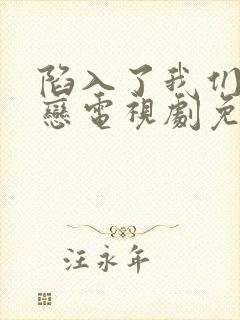 陷入了我们
戀電視劇免
汪永年